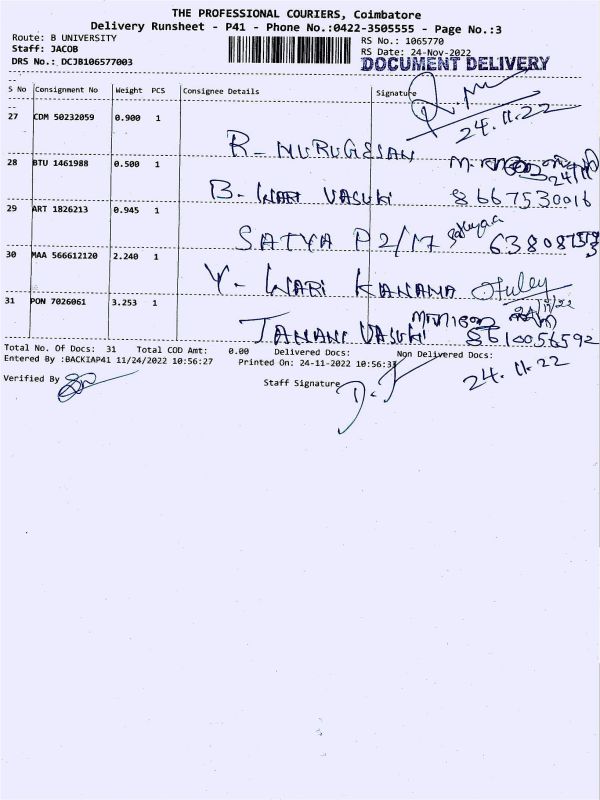 THE PROFESSIONAL COURIERS, Coimbatore
Delivery Runsheet - P41 - Phone No.:0422-3505555 - Page No.:3
Route: B UNIVERSITY
RS No.: 1065770
Staff: JACOB
RS Date: 24-Nov-2022
DRS No.: DCJB106577003
DOCUMENT DELIVERY
S No Consignment No Weight PCS Consignee Details Signature
24.11.22
27 CDM 50232059 0.900 1
R- MURUGESAN
28 BTU 1461988 0.500 1
B. VASUKI 8667530016
29 ART 1826213 0.945 1
SATYA P2/17
30 MAA 566612120 2.240 1
Y-
31 PON 7026061 3.253 1
VASUKI 8610056592
Total No. Of Docs: 31 Total COD Amt: 0.00 Delivered Docs: Non Delivered Docs:
Entered By :BACKIAP41 11/24/2022 10:56:27 Printed On: 24-11-2022 10:56:
24.11.22
Verified By
Staff Signature